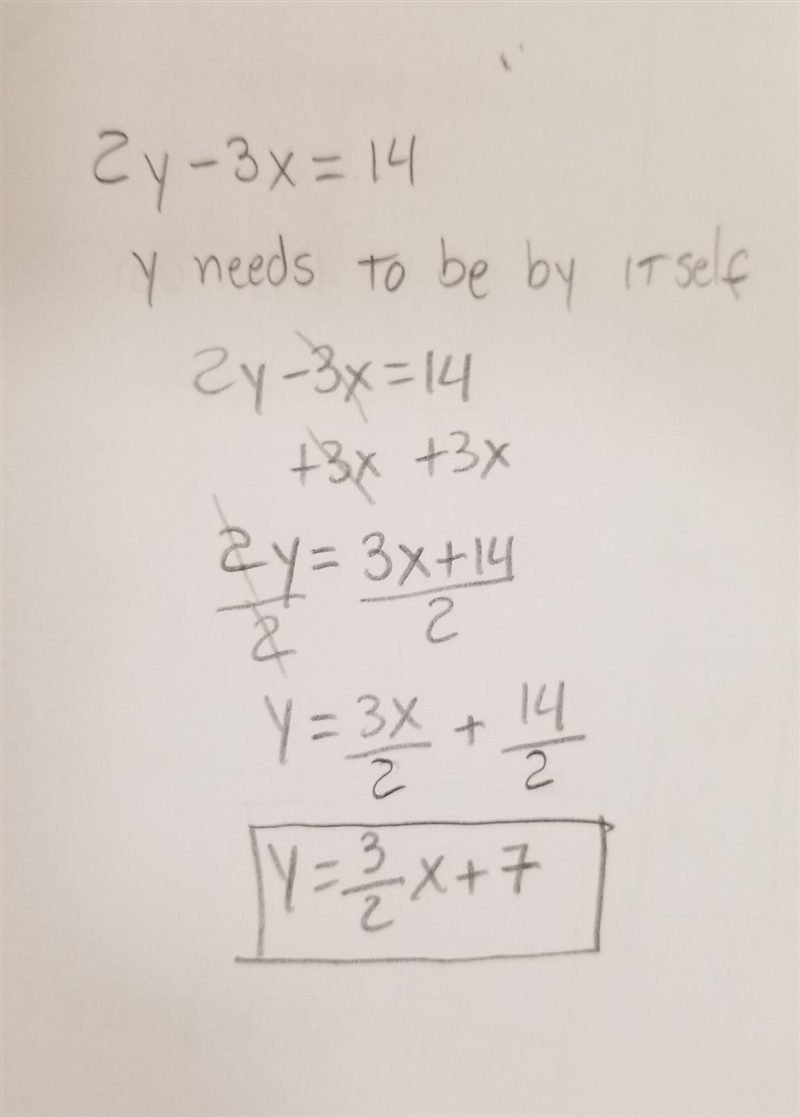 2y-3x=14
y needs to be by itself
2y-3x=14
+3x +3x
2y/2 = 3x+14/2
y = 3x/2 + 14/2
y = 3/2 x + 7